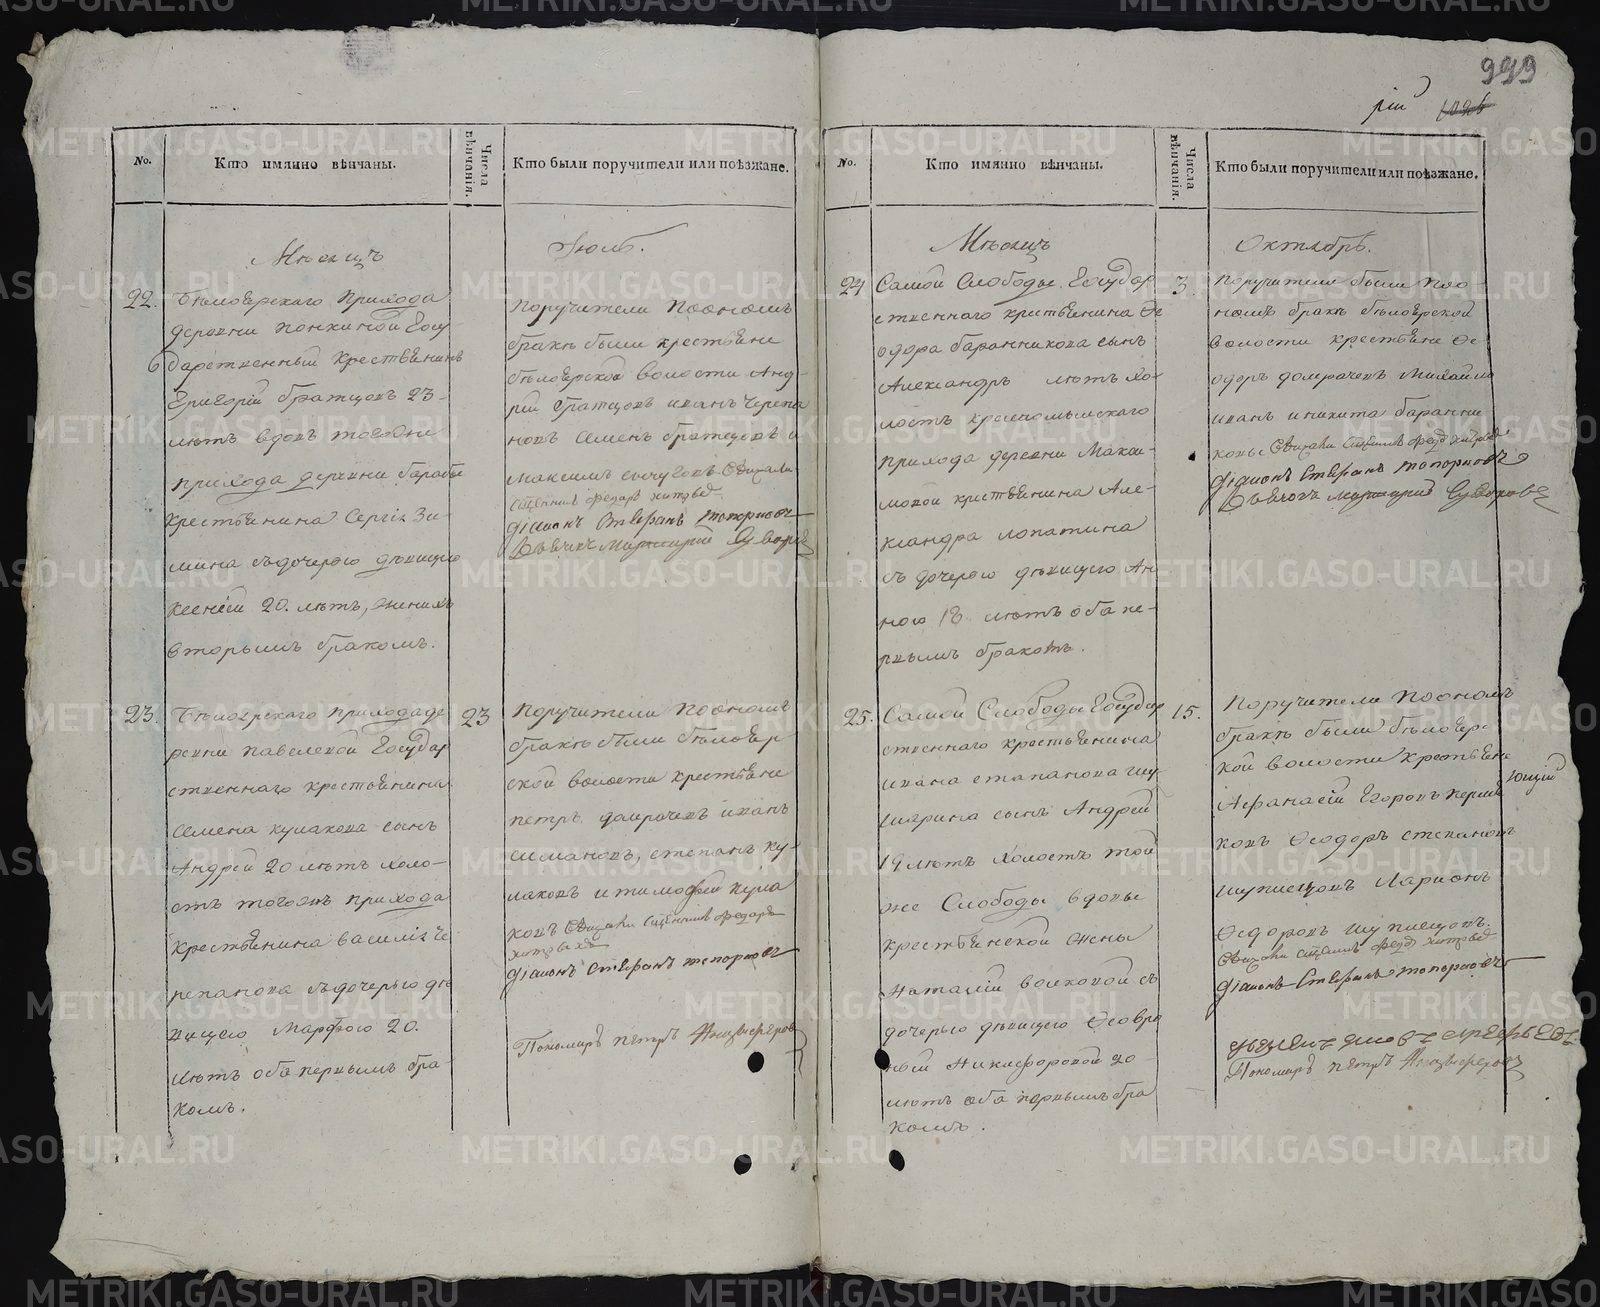 999
рїи 1026
No.
Кто имянно вѣнчаны.
Числа вѣнчанія.
Кто были поручители или поѣзжане.
Мѣсецъ
Іюль.
22.
Бѣлоерскаго прихода
деревни понкиной Госу
дарственный крестьенинъ
Григорій братцовъ 23-
лѣтъ вдовъ тогоже
прихода деревни бараби
крестьенина Сергія Зи-
мина съдочерою дѣвицею
ксеніей 20. лѣтъ, женихъ
вторымъ бракомъ.
поручители поономъ
бракѣ были крестьене
бѣлоерской волости Анд-
рій братцовъ иванъ Черепа
новъ семенъ братцовъ и
максимъ сычуговъ
діаконъ Стефанъ топорковъ
23.
Бѣлоерскаго прихода де
ревни павелевой Государ
ственнаго крестьенина
семена кулакова сынъ
Андрей 20 лѣтъ холо-
стъ тогожъ прихода
крестьенина василія че
репанова съдочерью дѣ
вицею Марфою 20.
лѣтъ оба первымъ бра-
комъ.
23
Поручители поономъ
бракѣ были бѣлояр
ской волости крестьене
петръ домрачевъ иванъ
симановъ, степанъ ку-
лаковъ и тимофей кула
ковъ
діаконъ Стефанъ топорковъ
Пономарь петръ
No.
Кто имянно вѣнчаны.
Числа вѣнчанія.
Кто были поручители или поѣзжане.
Мѣсецъ
Октябрь.
24
Самой Слободы Государ
ственнаго крестьенина Ѳе
одора баранникова сынъ
Александръ лѣтъ хо-
лостъ красномыскаго
прихода деревни Макси-
мовой крестьенина Але-
ксандра лопатина
съ дочерою дѣвицею Ан
ною 18 лѣтъ оба пе-
рвымъ бракомъ.
3.
поручители были поо-
номъ бракѣ бѣлоярской
волости крестьене Ѳе-
одоръ домрачевъ Михайло
иванъ иникита баранни
ковы
діаконъ Стефанъ топорковъ
25.
Самой Слободы Государ
ственнаго крестьенина
ивана степанова шу
сынъ Андрей
19 лѣтъ холостъ той
же Слободы вдовы
крестьенской жены
Наталіи волковой съ
дочерью дѣвицею Ѳевро
ньей Никифоровой 20
лѣтъ оба первымъ бра
комъ.
15.
Поручители поономъ
бракѣ были бѣлоярс-
кой волости крестьене
Афанасій Егоровъ перши
ковъ Ѳеодоръ степановъ
Ларионъ
Ѳедоровъ
діаконъ Стефанъ топорковъ
Пономарь петръ
ющій